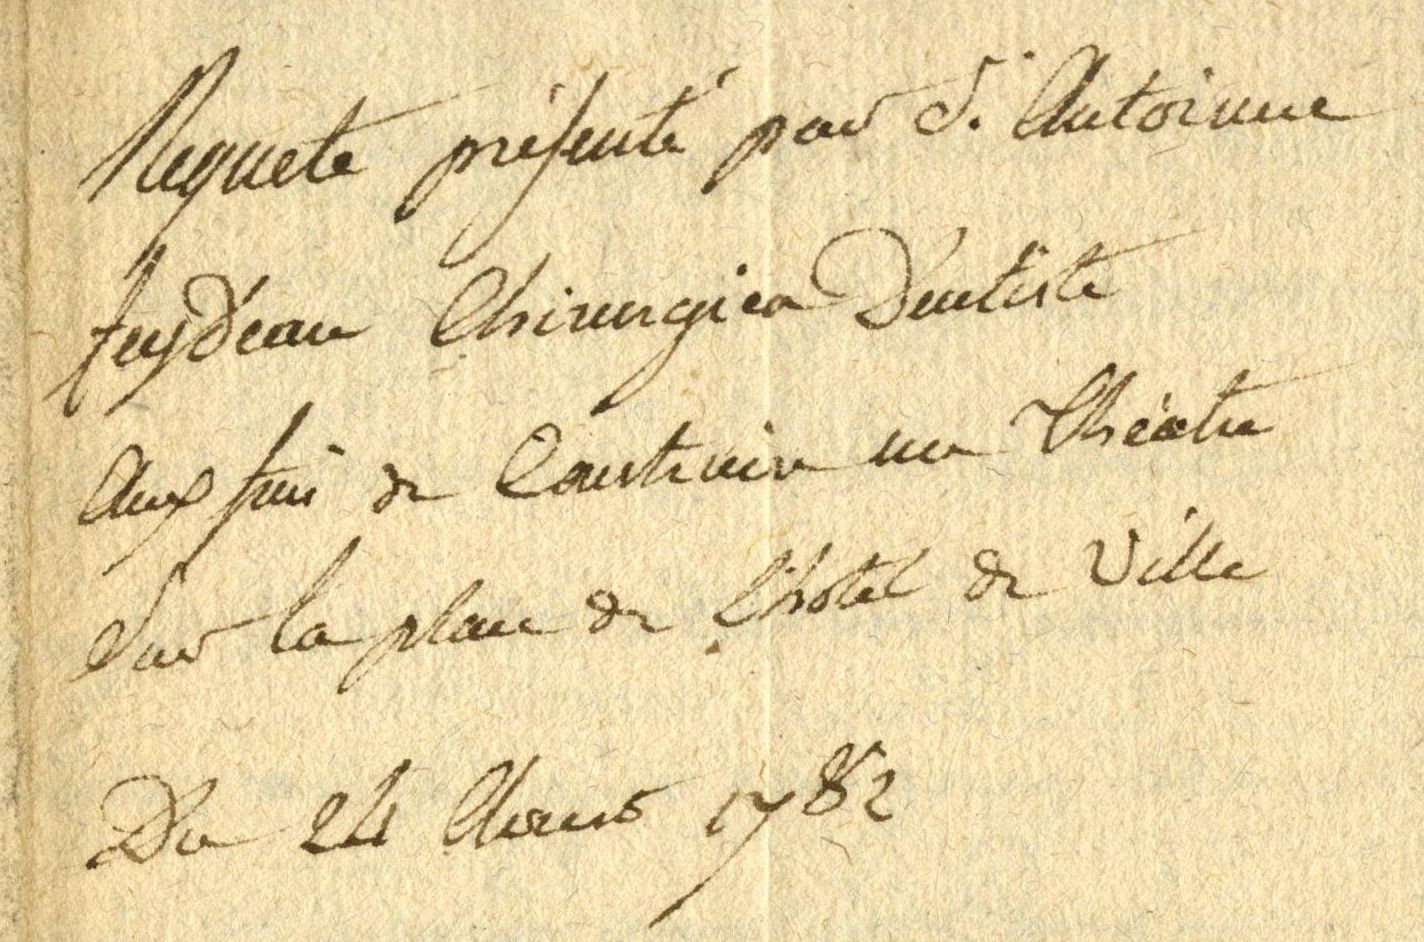 Requete présenté par S. Antoinne
feydeau Chirurgien Dentiste
Aux fins de Construire un théatre
Sur la place de l'hotel de Ville
Du 24 1782